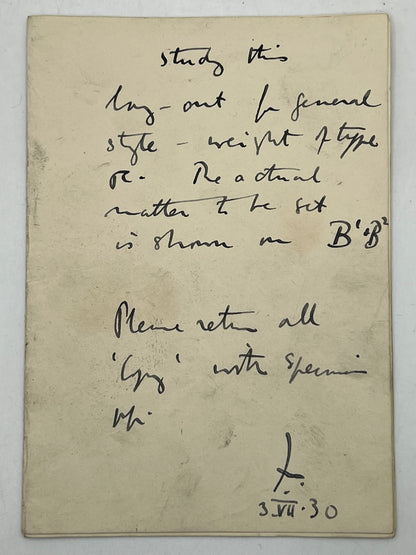 Study this
lay-out for general
style - weight of type
etc. The actual
matter to be set
is shown on B¹ & B²
Please return all
'Copy' with specimen
3.VII.30